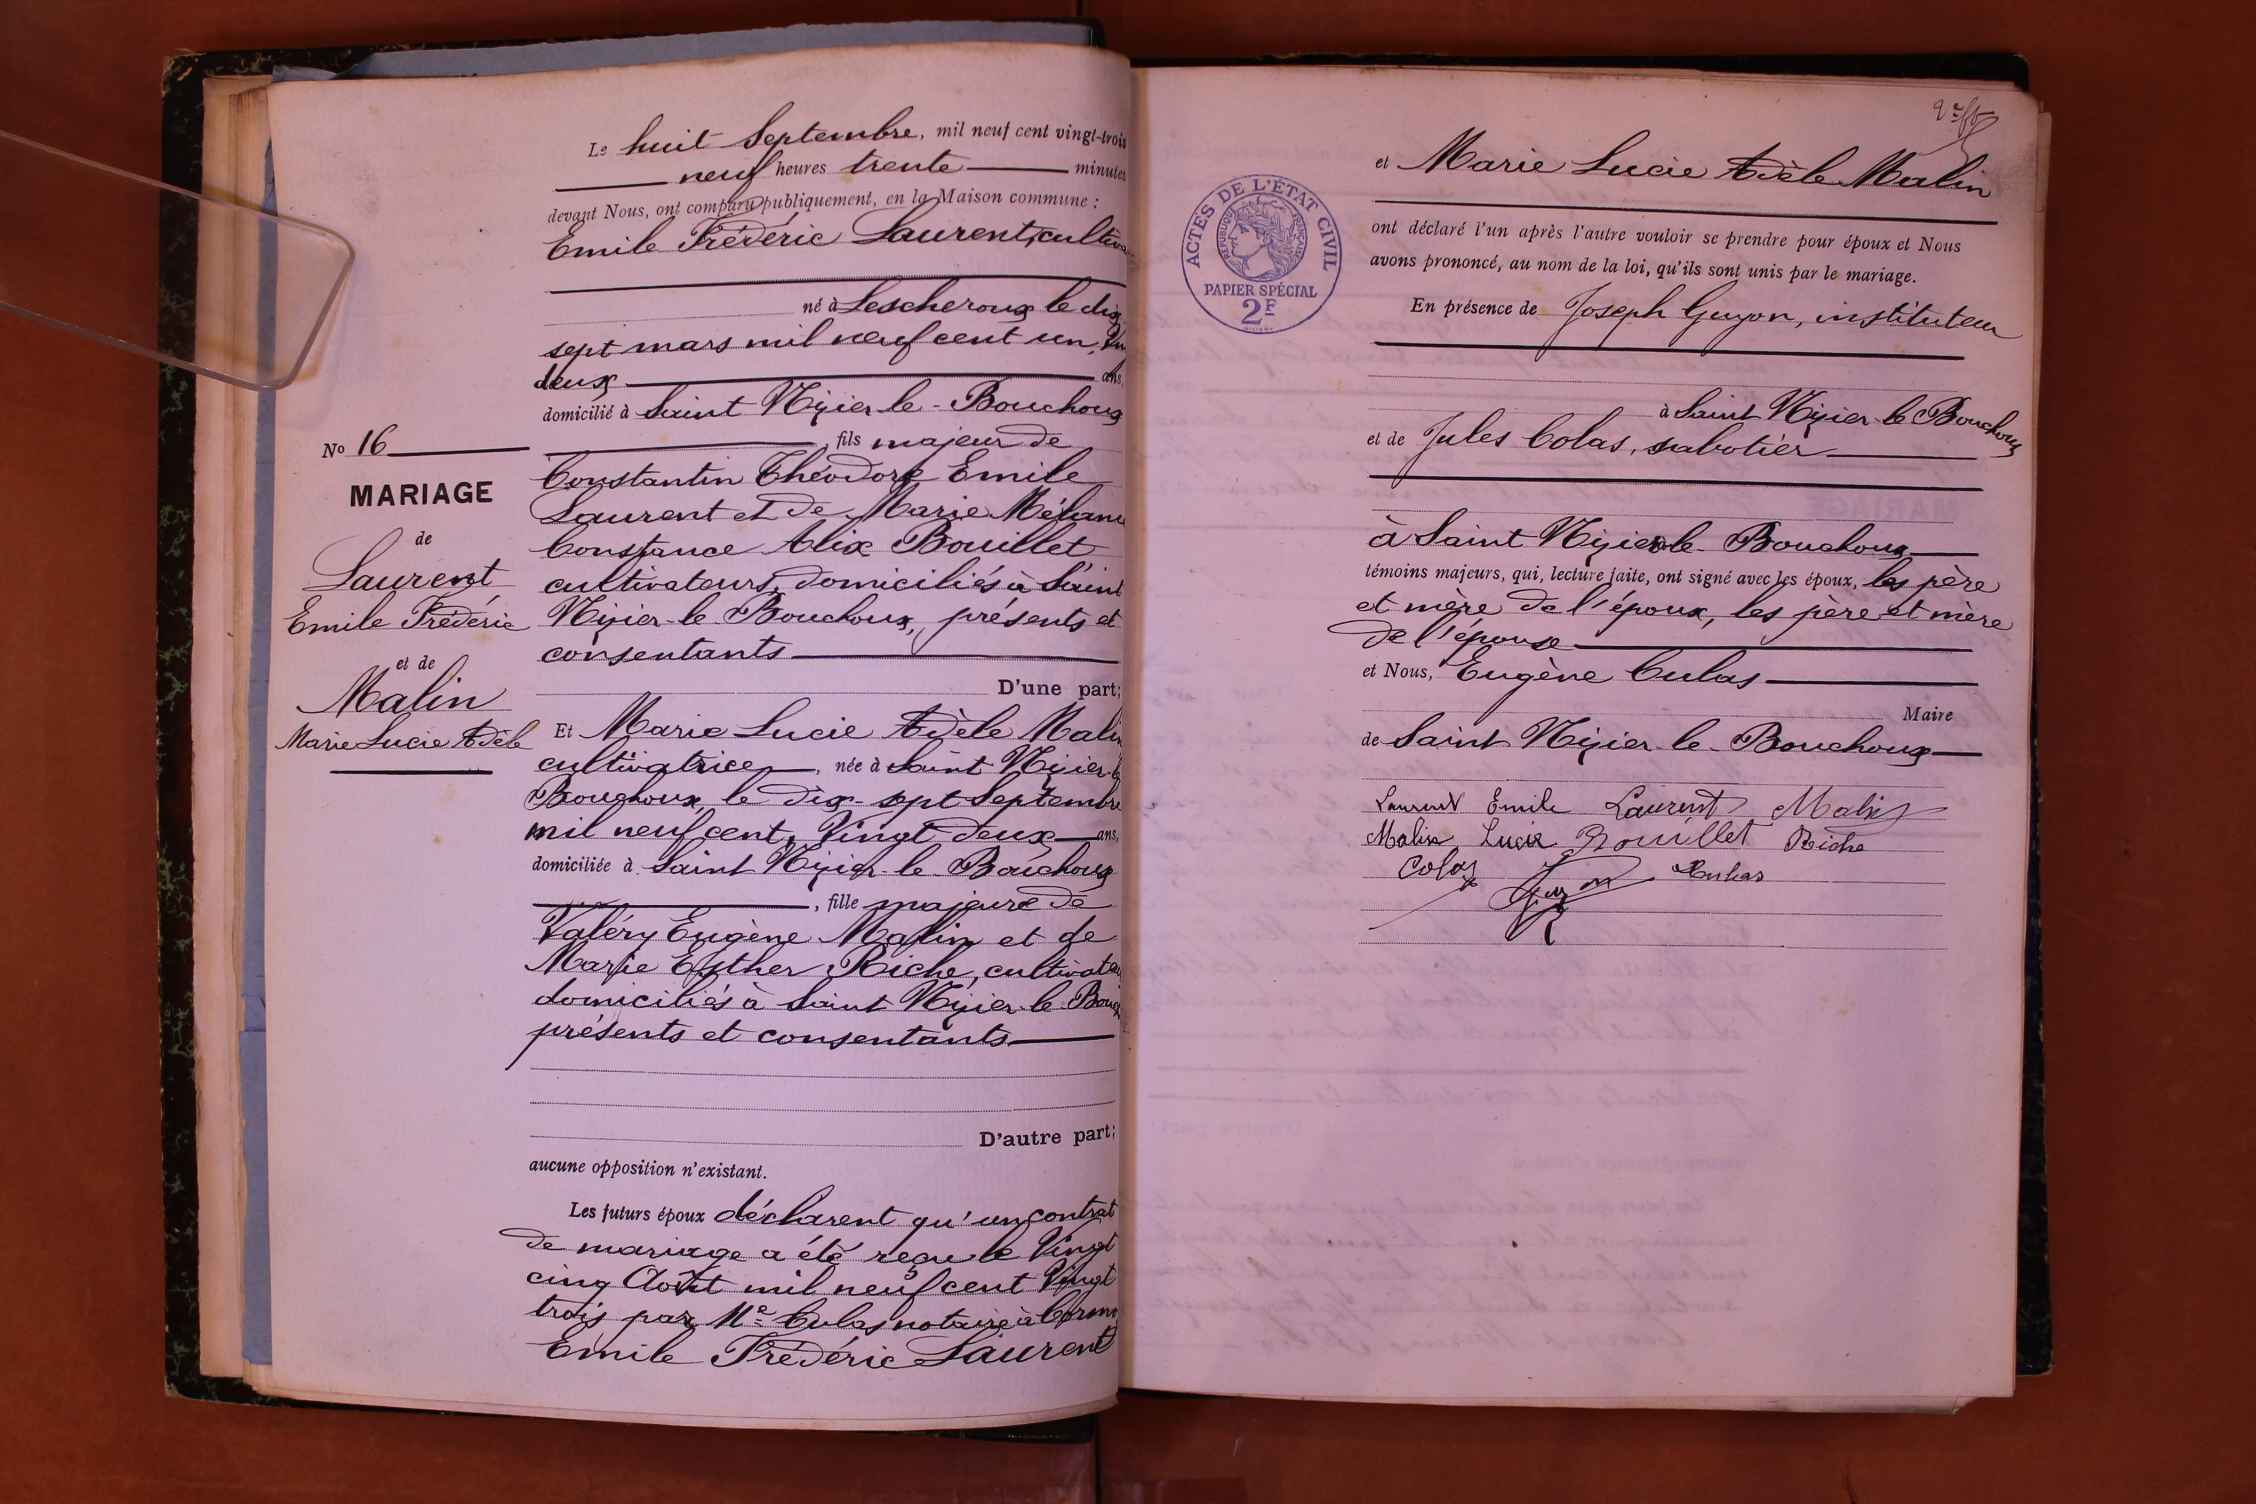 Le huit Septembre, mil neuf cent vingt-trois
neuf heures trente minutes
devant Nous, ont comparu publiquement, en la Maison commune :
Emile Frédéric Laurent, cultiva
né à Lescheroux le dix
sept mars mil neuf cent un,
deux ans,
domicilié à Saint Nizier-le-Bouchoux
, fils majeur de
Constantin Théodore Emile
Laurent et de Marie Mélanie
Constance Alix Bouillet
cultivateurs, domiciliés à Saint
Nizier-le-Bouchoux, présents et
consentants
D'une part;
Et Marie Lucie Adèle Malin
cultivatrice, née à Saint Nizier-le
Bouchoux, le dix-sept Septembre
mil neuf cent, Vingt deux ans,
domiciliée à Saint Nizier-le-Bouchoux
, fille majeure de
Valéry Eugène Malin et de
Marie Esther Riche, cultivateu
domiciliés à Saint Nizier-le-Bouch
présents et consentants
D'autre part;
aucune opposition n'existant.
Les futurs époux déclarent qu'un contrat
de mariage a été reçu le Vingt
cinq Août mil neuf cent Vingt
trois par Me Culas notaire à Cormo
Emile Frédéric Laurent
No 16
MARIAGE
de
Laurent
Emile Frédéric
et de
Malin
Marie Lucie Adèle
et Marie Lucie Adèle Malin
ACTES DE L'ÉTAT CIVIL
RÉPUBLIQUE FRANÇAISE
PAPIER SPÉCIAL
2F
ont déclaré l'un après l'autre vouloir se prendre pour époux et Nous
avons prononcé, au nom de la loi, qu'ils sont unis par le mariage.
En présence de Joseph Guyon, instituteur
à Saint Nizier-le Bouchoux
et de Jules Colas, sabotier
à Saint Nizier-le-Bouchoux
témoins majeurs, qui, lecture faite, ont signé avec les époux, les père
et mère de l'époux, les père et mère
de l'épouse
et Nous, Eugène Culas
Maire
de Saint Nizier-le-Bouchoux
Laurent Emile Laurent Malin
Malin Lucie Bouillet Riche
Colas Guyon Culas